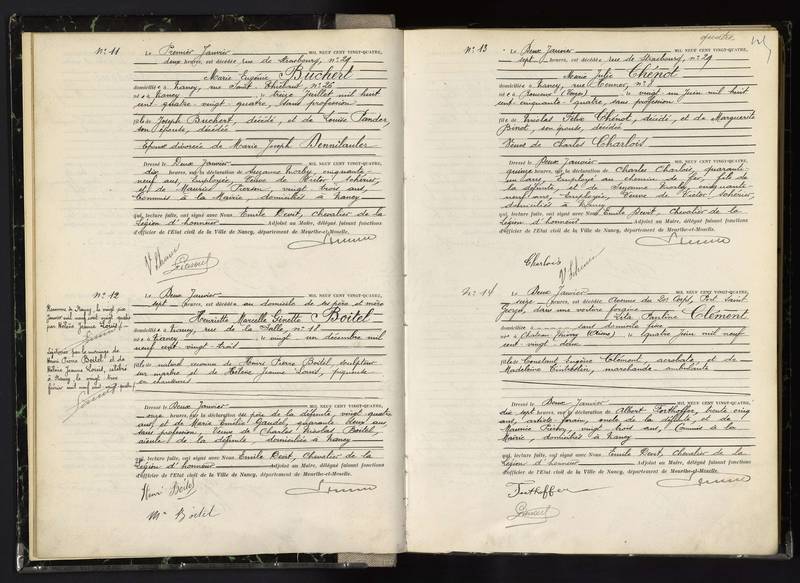 N° 11
Le Premier Janvier MIL NEUF CENT VINGT-QUATRE,
deux heures, est décédée rue de Strasbourg, n° 29
Marie Eugénie Buchert
domiciliée à Nancy, rue Saint Thiébaut n° 26
née à Nancy le treize Juillet mil huit
cent quatre vingt quatre, sans profession
fille de Joseph Buchert, décédé, et de Louise Pander,
son épouse, décédée
Epouse divorcée de Marie Joseph Dennilauler
Dressé le Deux Janvier MIL NEUF CENT VINGT-QUATRE,
dix heures, sur la déclaration de Suzanne Worley, cinquante
neuf ans, Employée, Veuve de Victor Schérier,
et de Maurice Pierson, vingt trois ans,
Commis à la Mairie, domiciliés à Nancy
qui, lecture faite, ont signé avec Nous Emile Devit, Chevalier de la
Légion d'honneur Adjoint au Maire, délégué faisant fonctions
d'Officier de l'Etat civil de la Ville de Nancy, département de Meurthe-et-Moselle.
N° 12
Le Deux Janvier MIL NEUF CENT VINGT-QUATRE,
sept heures, est décédée au domicile de ses père et mère
Henriette Marcelle Ginette Boitel
domiciliée à Nancy, rue de la Salle, n° 18
née à Nancy le vingt un décembre mil
neuf cent vingt trois
fille naturel reconnue de Henri Pierre Boitel, sculpteur
sur marbre et de Hélène Jeanne Louis, piqueuse
en chaussures
Reconnue à Nancy, le vingt six
Janvier mil neuf cent vingt quatre
par Hélène Jeanne Louis
Légitimée par le mariage de
Henri Pierre Boitel et de
Hélène Jeanne Louis, célébré
à Nancy le vingt trois
février mil neuf cent vingt quatre
Dressé le Deux Janvier MIL NEUF CENT VINGT-QUATRE,
onze heures, sur la déclaration du père de la défunte, vingt quatre
ans, et de Marie Emélie Gaudel, quarante deux ans,
sans profession, Veuve de Charles Nicolas Boitel,
aïeule de la défunte, domiciliés à Nancy
qui, lecture faite, ont signé avec Nous Emile Devit, Chevalier de la
Légion d'honneur Adjoint au Maire, délégué faisant fonctions
d'Officier de l'Etat civil de la Ville de Nancy, département de Meurthe-et-Moselle.
Henri Boitel
Me Boitel
quatre
N° 13
Le Deux Janvier MIL NEUF CENT VINGT-QUATRE,
sept heures, est décédée, rue de Strasbourg, n° 29
Marie Julie Chénot
domiciliée à Nancy, rue
née à (Vosges) le vingt un Juin mil huit
cent cinquante quatre, sans profession
fille de Nicolas Félix Chénot, décédé, et de Marguerite
Binot, son épouse, décédée
Veuve de Charles Charlois
Dressé le Deux Janvier MIL NEUF CENT VINGT-QUATRE,
quinze heures, sur la déclaration de Charles Charlois, quarante
un ans, Employé au Chemin de fer, fils de
la défunte, et de Suzanne Worley, cinquante
neuf ans, Employée, Veuve de Victor Schérier,
domiciliés à Nancy
qui, lecture faite, ont signé avec Nous Emile Devit, Chevalier de la
Légion d'honneur Adjoint au Maire, délégué faisant fonctions
d'Officier de l'Etat civil de la Ville de Nancy, département de Meurthe-et-Moselle.
Charlois
N° 14
Le Deux Janvier MIL NEUF CENT VINGT-QUATRE,
seize heures, est décédée Avenue du 20e Corps, Port Saint
Georges, dans une voiture foraine
Pauline Clément
domiciliée sans domicile fixe
née à Château Thierry (Aisne) le quatre Juin mil neuf
cent vingt deux
fille de Constant Eugène Clément, acrobate, et de
Madeleine marchande ambulante
Dressé le Deux Janvier MIL NEUF CENT VINGT-QUATRE,
dix sept heures, sur la déclaration de Albert Forthoffer, trente cinq
ans, artiste forain, oncle de la défunte, et de
Maurice Pierson, vingt trois ans, Commis de la
Mairie, domiciliés à Nancy
qui, lecture faite, ont signé avec Nous Emile Devit, Chevalier de la
Légion d'honneur Adjoint au Maire, délégué faisant fonctions
d'Officier de l'Etat civil de la Ville de Nancy, département de Meurthe-et-Moselle.
Forthoffer